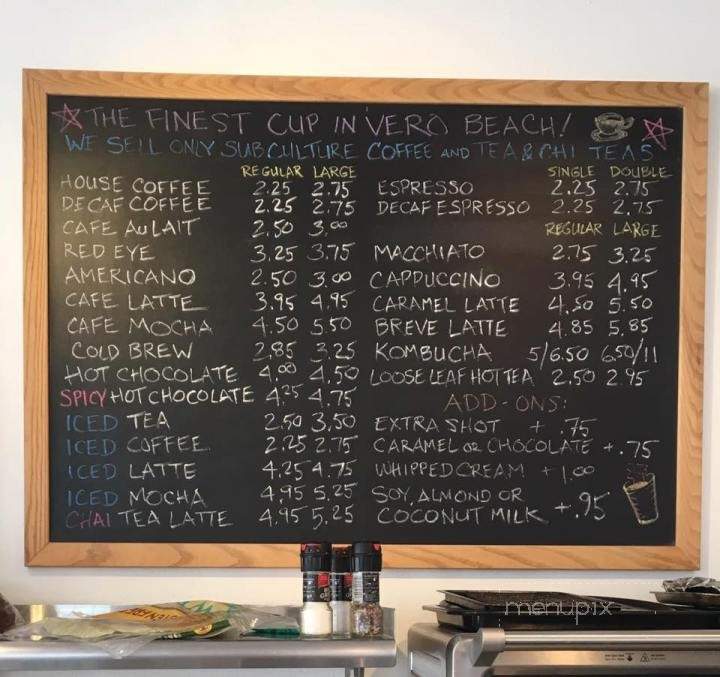 THE FINEST CUP IN VERO BEACH!
WE SELL ONLY SUBCULTURE COFFEE AND TEA & CHI TEAS
REGULAR LARGE
HOUSE COFFEE 2.25 2.75
DECAF COFFEE 2.25 2.75
CAFE AU LAIT 2.50 3.00
RED EYE 3.25 3.75
AMERICANO 2.50 3.00
CAFE LATTE 3.95 4.95
CAFE MOCHA 4.50 5.50
COLD BREW 2.85 3.25
HOT CHOCOLATE 4.00 4.50
SPICY HOT CHOCOLATE 4.25 4.75
ICED TEA 2.50 3.50
ICED COFFEE 2.25 2.75
ICED LATTE 4.25 4.75
ICED MOCHA 4.95 5.25
CHAI TEA LATTE 4.95 5.25
SINGLE DOUBLE
ESPRESSO 2.25 2.75
DECAF ESPRESSO 2.25 2.75
REGULAR LARGE
MACCHIATO 2.75 3.25
CAPPUCCINO 3.95 4.95
CARAMEL LATTE 4.50 5.50
BREVE LATTE 4.85 5.85
KOMBUCHA 5/6.50 6.50/11
LOOSE LEAF HOT TEA 2.50 2.95
ADD-ONS:
EXTRA SHOT + .75
CARAMEL OR CHOCOLATE + .75
WHIPPED CREAM + 1.00
SOY, ALMOND OR
COCONUT MILK + .95
menupix